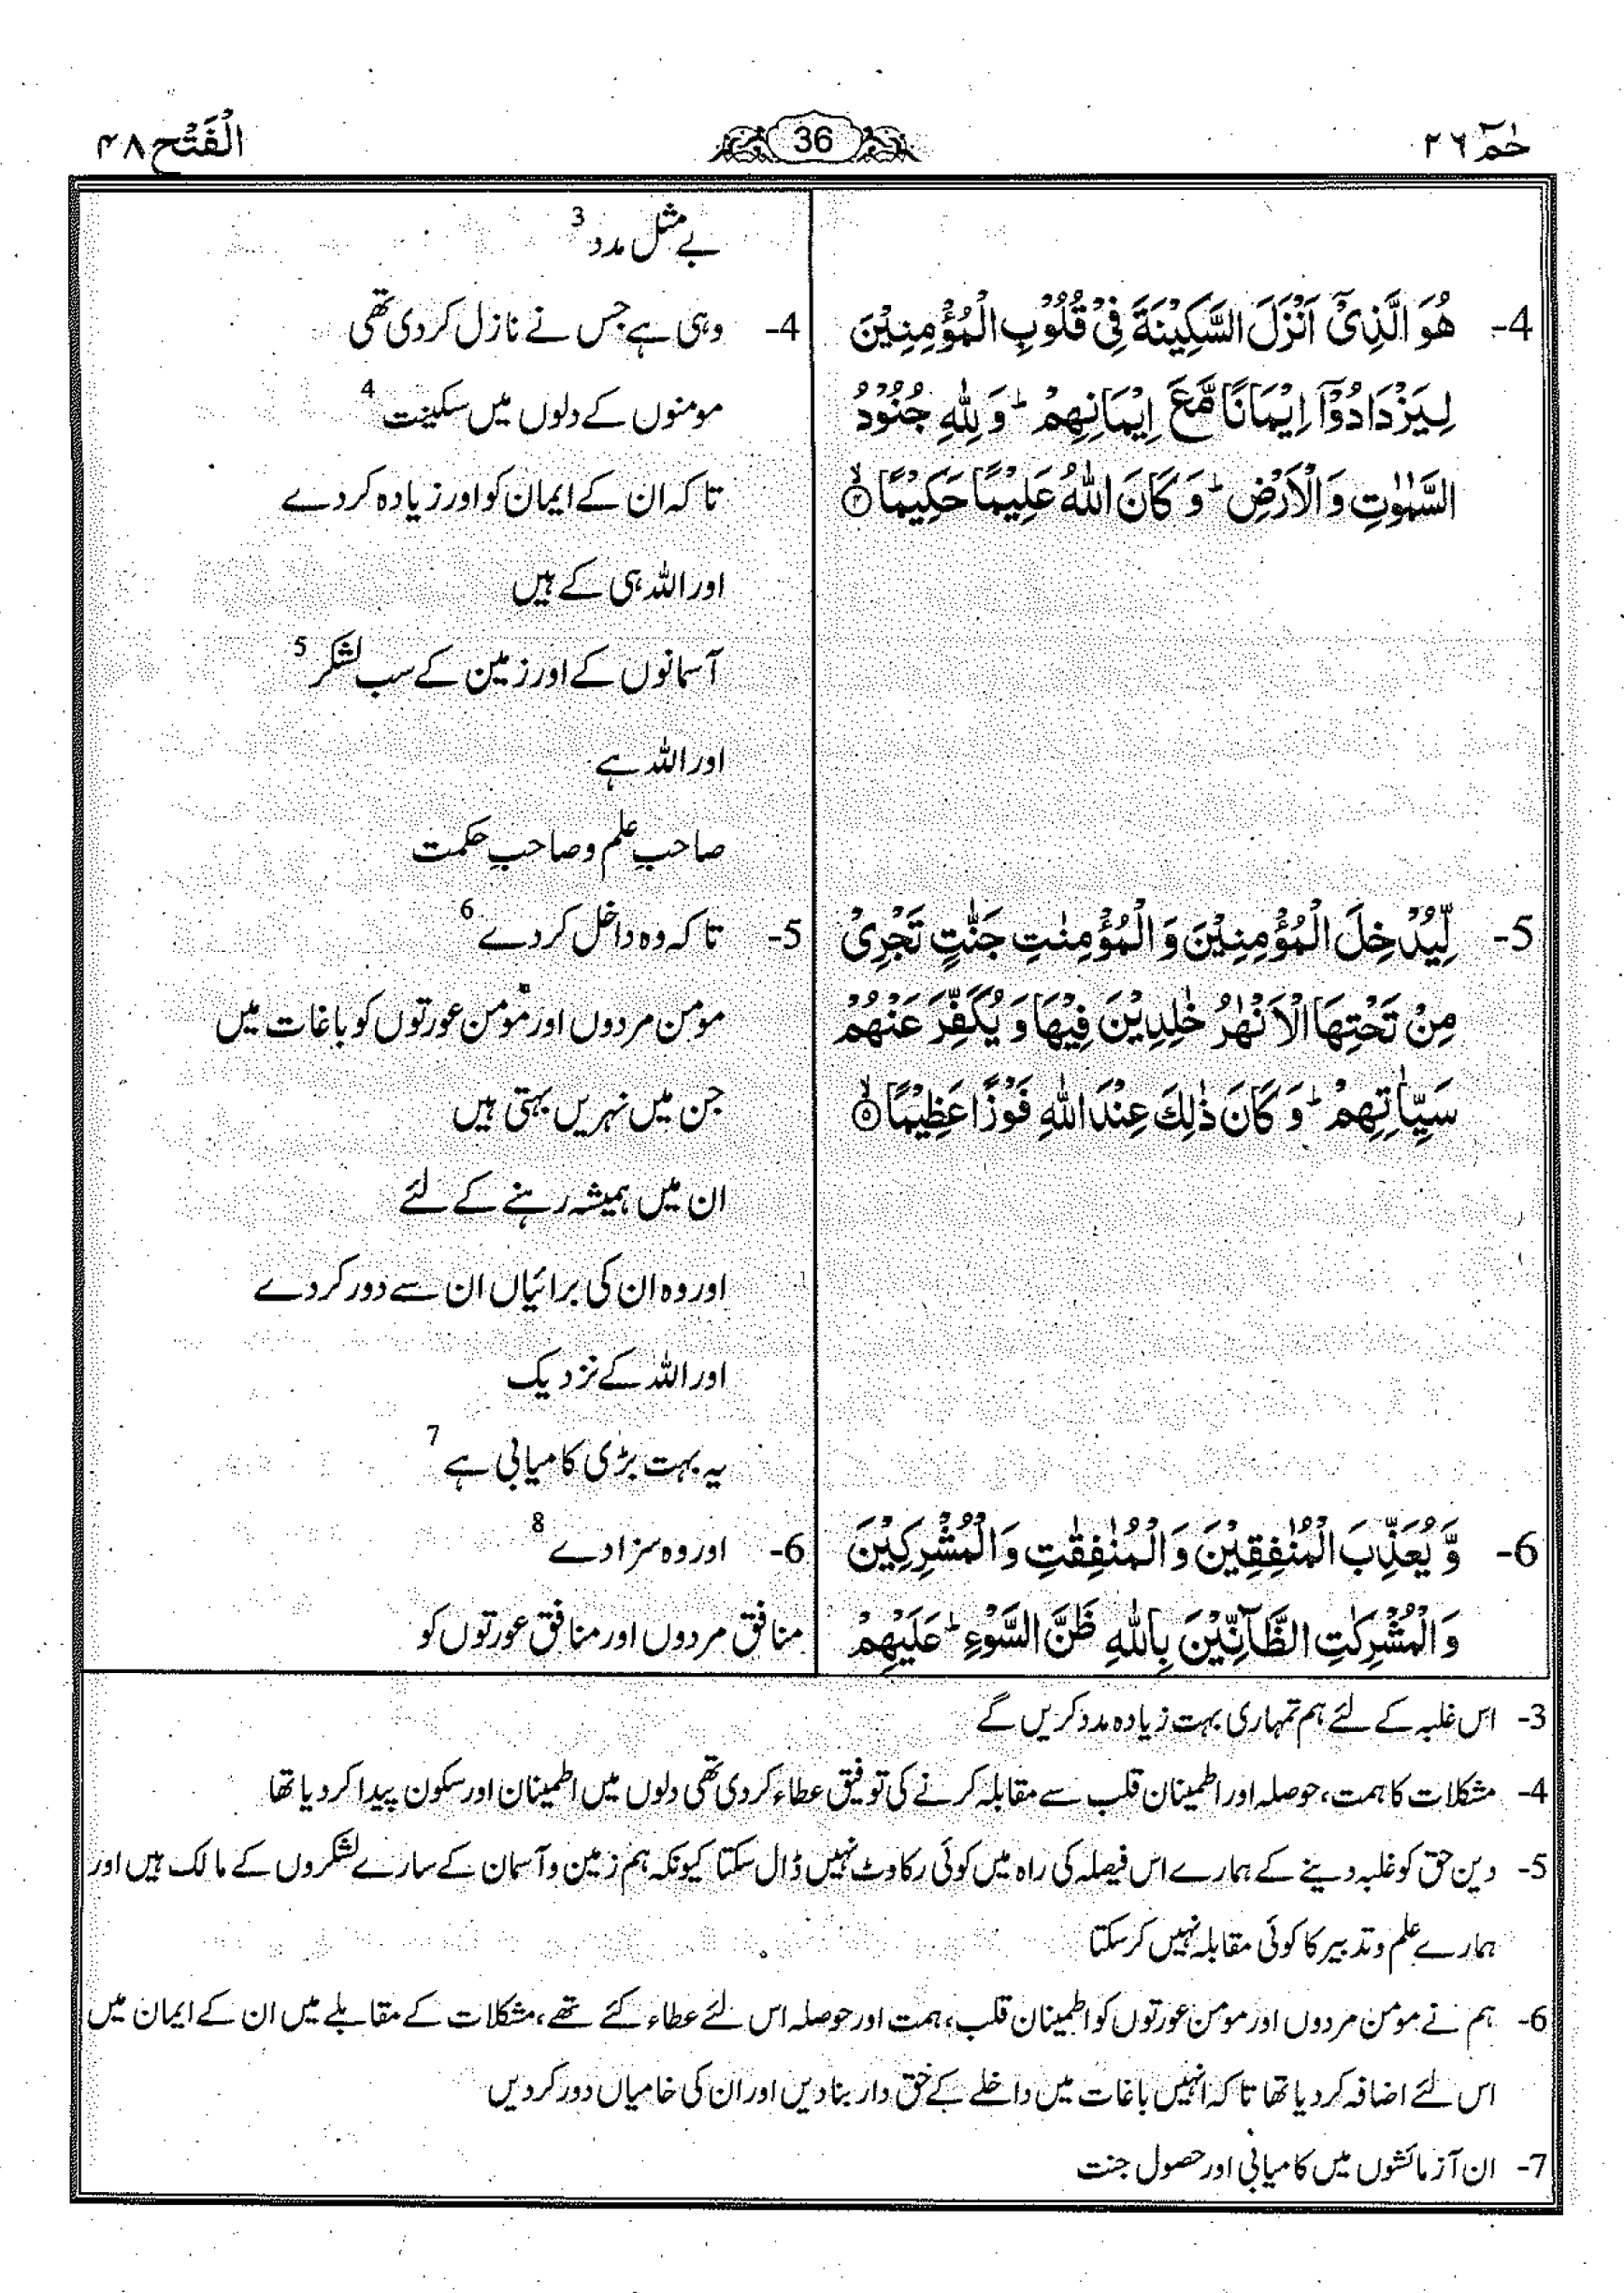 حٰمٓ ٢٦
36
الْفَتْح ٤٨
بے مثل مدد 3
4- هُوَ الَّذِیْۤ اَنْزَلَ السَّكِیْنَةَ فِیْ قُلُوْبِ الْمُؤْمِنِیْنَ
لِیَزْدَادُوْۤا اِیْمَانًا مَّعَ اِیْمَانِهِمْ ؕ وَ لِلّٰهِ جُنُوْدُ
السَّمٰوٰتِ وَ الْاَرْضِ ؕ وَ كَانَ اللّٰهُ عَلِیْمًا حَكِیْمًا ۙ﴿۴﴾
4- وہی ہے جس نے نازل کردی تھی
مومنوں کے دلوں میں سکینت 4
تاکہ ان کے ایمان کو اور زیادہ کردے
اور اللہ ہی کے ہیں
آسمانوں کے اور زمین کے سب لشکر 5
اور اللہ ہے
صاحبِ علم و صاحبِ حکمت
5- لِّیُدْخِلَ الْمُؤْمِنِیْنَ وَ الْمُؤْمِنٰتِ جَنّٰتٍ تَجْرِیْ
مِنْ تَحْتِهَا الْاَنْهٰرُ خٰلِدِیْنَ فِیْهَا وَ یُكَفِّرَ عَنْهُمْ
سَیِّاٰتِهِمْ ؕ وَ كَانَ ذٰلِكَ عِنْدَ اللّٰهِ فَوْزًا عَظِیْمًا ۙ﴿۵﴾
5- تاکہ وہ داخل کردے 6
مومن مردوں اور مومن عورتوں کو باغات میں
جن میں نہریں بہتی ہیں
ان میں ہمیشہ رہنے کے لئے
اور وہ ان کی برائیاں ان سے دور کردے
اور اللہ کے نزدیک
یہ بہت بڑی کامیابی ہے 7
6- وَّ یُعَذِّبَ الْمُنٰفِقِیْنَ وَ الْمُنٰفِقٰتِ وَ الْمُشْرِكِیْنَ
وَ الْمُشْرِكٰتِ الظَّآنِّیْنَ بِاللّٰهِ ظَنَّ السَّوْءِ ؕ عَلَیْهِمْ
6- اور وہ سزا دے 8
منافق مردوں اور منافق عورتوں کو
3- اس غلبہ کے لئے ہم تمہاری بہت زیادہ مدد کریں گے
4- مشکلات کا ہمت، حوصلہ اور اطمینان قلب سے مقابلہ کرنے کی توفیق عطاء کردی تھی دلوں میں اطمینان اور سکون پیدا کر دیا تھا
5- دین حق کو غلبہ دینے کے ہمارے اس فیصلہ کی راہ میں کوئی رکاوٹ نہیں ڈال سکتا کیونکہ ہم زمین و آسمان کے سارے لشکروں کے مالک ہیں اور
ہمارے علم و تدبیر کا کوئی مقابلہ نہیں کرسکتا
6- ہم نے مومن مردوں اور مومن عورتوں کو اطمینان قلب، ہمت اور حوصلہ اس لئے عطاء کئے تھے، مشکلات کے مقابلے میں ان کے ایمان میں
اس لئے اضافہ کردیا تھا تاکہ انہیں باغات میں داخلے کے حق دار بنادیں اور ان کی خامیاں دور کردیں
7- ان آزمائشوں میں کامیابی اور حصول جنت